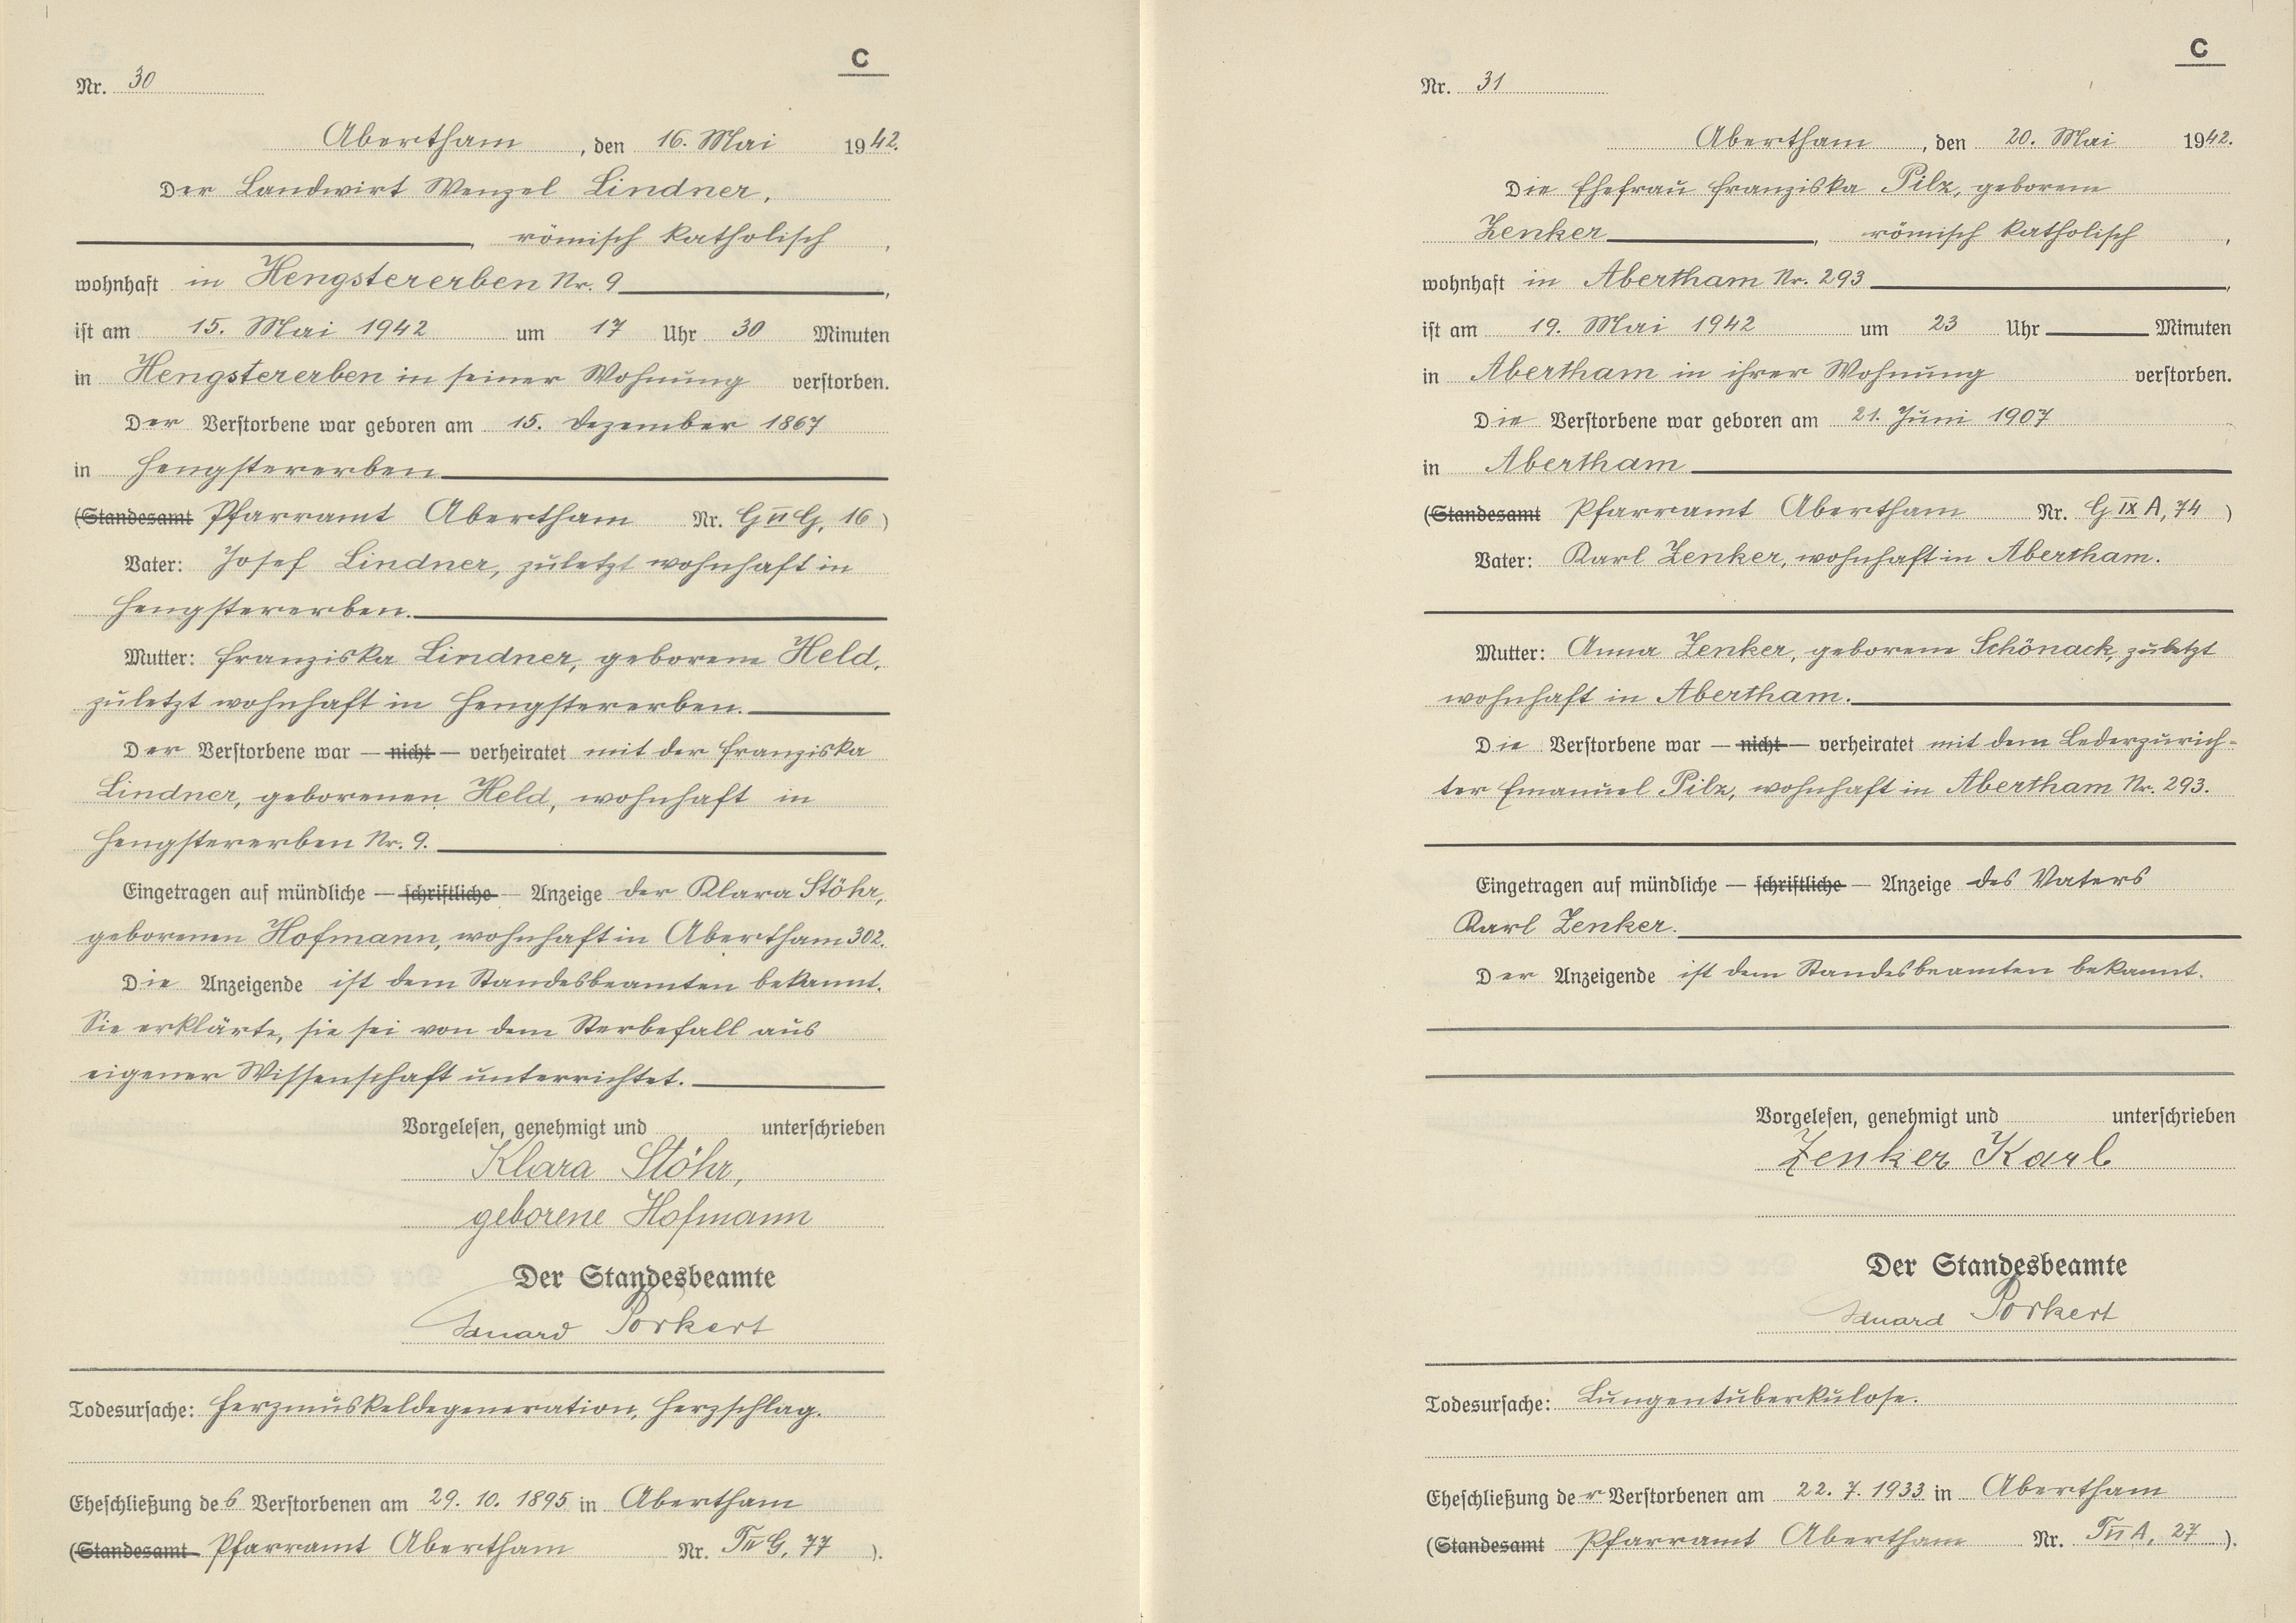 C
Nr. 30
Abertham, den 16. Mai 1942.
Der Landwirt Wenzel Lindner,
, römisch katholisch,
wohnhaft in Hengstererben Nr. 9,
ist am 15. Mai 1942 um 17 Uhr 30 Minuten
in Hengstererben in seiner Wohnung verstorben.
Der Verstorbene war geboren am 15. Dezember 1867
in Hengstererben
(Standesamt Pfarramt Abertham Nr. G II G, 16)
Vater: Josef Lindner, zuletzt wohnhaft in
Hengstererben.
Mutter: Franziska Lindner, geborene Held,
zuletzt wohnhaft in Hengstererben.
Der Verstorbene war — nicht — verheiratet mit der Franziska
Lindner, geborenen Held, wohnhaft in
Hengstererben Nr. 9.
Eingetragen auf mündliche — schriftliche — Anzeige der Klara Stöhr,
geborenen Hofmann, wohnhaft in Abertham 302.
Die Anzeigende ist dem Standesbeamten bekannt.
Sie erklärte, sie sei von dem Sterbefall aus
eigener Wissenschaft unterrichtet.
Vorgelesen, genehmigt und unterschrieben
Klara Stöhr,
geborene Hofmann
Der Standesbeamte
Eduard Porkert
Todesursache: Herzmuskeldegeneration, Herzschlag.
Eheschließung des Verstorbenen am 29. 10. 1895 in Abertham
(Standesamt Pfarramt Abertham Nr. T II G, 77).
C
Nr. 31
Abertham, den 20. Mai 1942.
Die Ehefrau Franziska Pilz, geborene
Zenker, römisch katholisch,
wohnhaft in Abertham Nr. 293,
ist am 19. Mai 1942 um 23 Uhr Minuten
in Abertham in ihrer Wohnung verstorben.
Die Verstorbene war geboren am 21. Juni 1907
in Abertham
(Standesamt Pfarramt Abertham Nr. G IX A, 74)
Vater: Karl Zenker, wohnhaft in Abertham.
Mutter: Anna Zenker, geborene Schönack, zuletzt
wohnhaft in Abertham.
Die Verstorbene war — nicht — verheiratet mit dem Lederzurich-
ter Emanuel Pilz, wohnhaft in Abertham Nr. 293.
Eingetragen auf mündliche — schriftliche — Anzeige des Vaters
Karl Zenker.
Der Anzeigende ist dem Standesbeamten bekannt.
Vorgelesen, genehmigt und unterschrieben
Zenker Karl
Der Standesbeamte
Eduard Porkert
Todesursache: Lungentuberkulose.
Eheschließung der Verstorbenen am 22. 7. 1933 in Abertham
(Standesamt Pfarramt Abertham Nr. T VI A, 27).